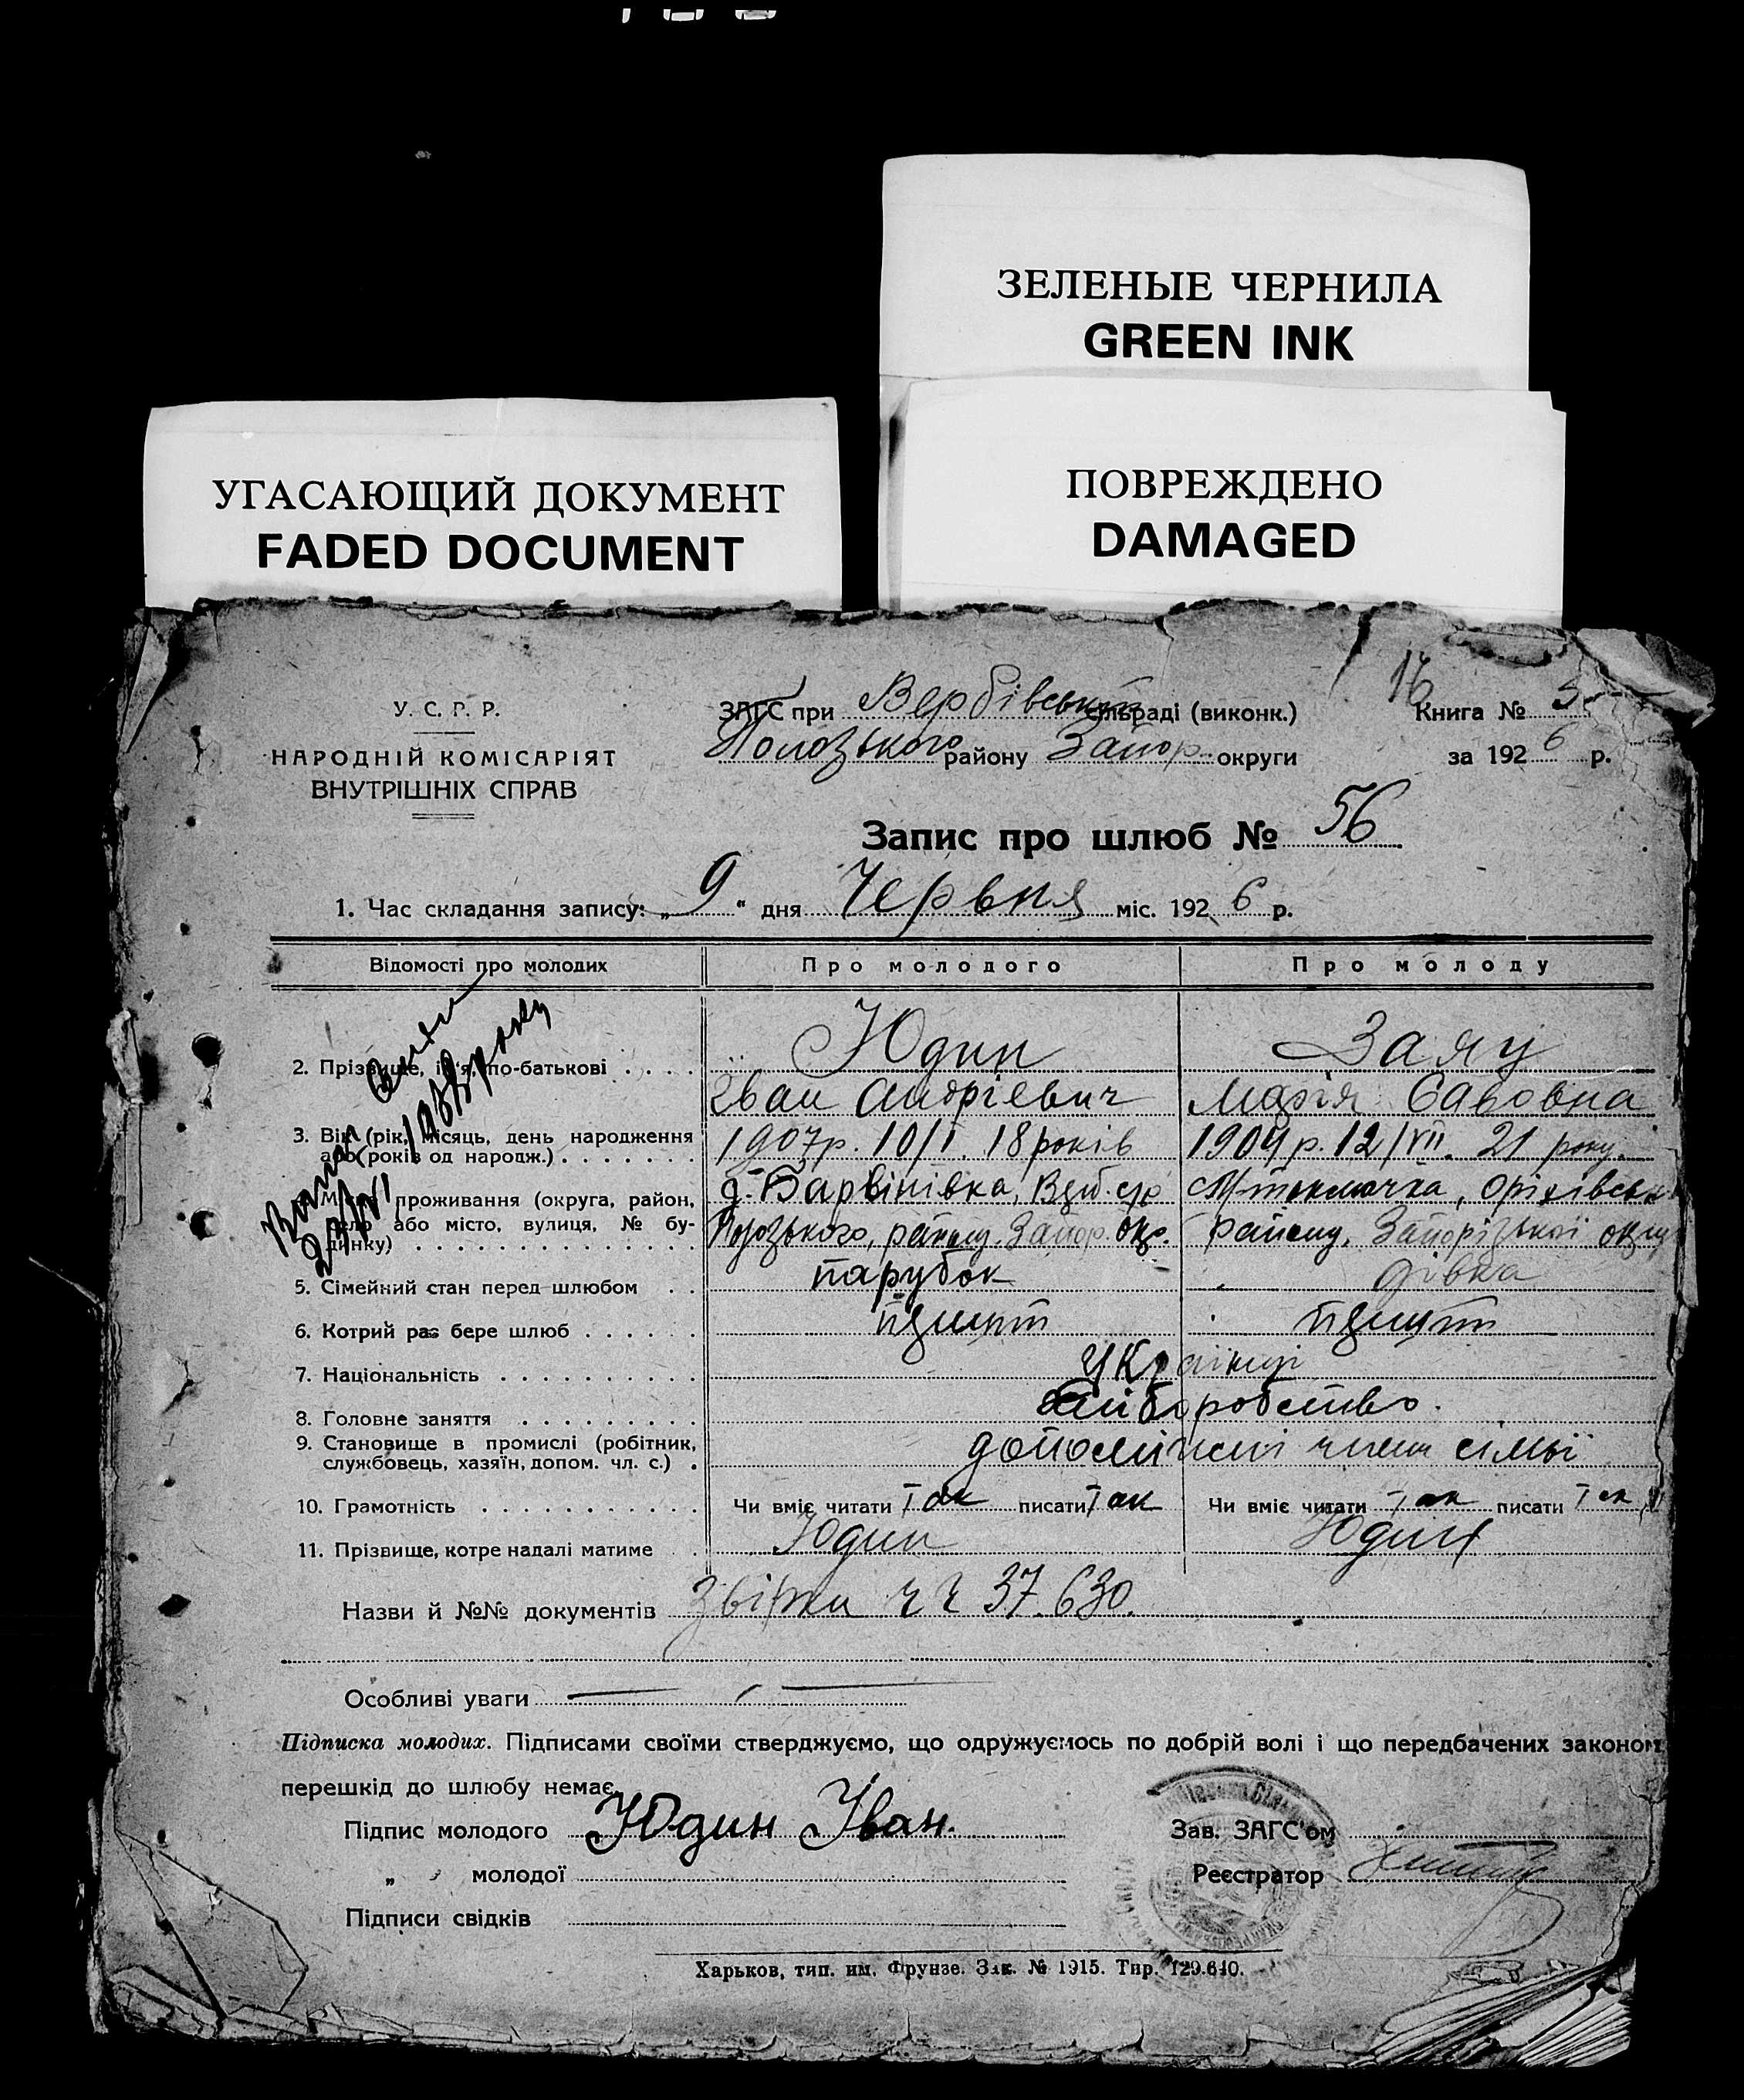 ЗЕЛЕНЫЕ ЧЕРНИЛА
GREEN INK
УГАСАЮЩИЙ ДОКУМЕНТ
FADED DOCUMENT
ПОВРЕЖДЕНО
DAMAGED
16
У. С. Р. Р.
НАРОДНІЙ КОМІСАРІЯТ
ВНУТРІШНІХ СПРАВ
ЗАГС при Вербівський сільраді (виконк.)
Пологського району Запор. округи
Книга № 5
за 1926 р.
Запис про шлюб № 56
1. Час складання запису: „9“ дня Червня міс. 1926 р.
Відомості про молодих Про молодого Про молоду
2. Прізвище, ім'я, по-батькові . . . . Юдин Заяц
Іван Андрієвич Марія Савовна
3. Вік (рік, місяць, день народження 1907 р. 10/I. 18 років 1904 р. 12/VII. 21 року.
або років од народж.) . . . . . . .
проживання (округа, район, д. Барвінівка,
село або місто, вулиця, № бу- району, Запор. окр. району, Запорізької
динку) . . . . . . . . . . . . . .
5. Сімейний стан перед шлюбом . . парубок дівка
6. Котрий раз бере шлюб . . . . . .
7. Національність . . . . . . . . . . українці
8. Головне заняття . . . . . . . . . хліборобство.
9. Становище в промислі (робітник, допоміжні член сімьї
службовець, хазяїн, допом. чл. с.) .
10. Грамотність . . . . . . . . . . . Чи вміє читати Так писати Так Чи вміє читати Так писати Так
11. Прізвище, котре надалі матиме . Юдин Юдин
Назви й №№ документів 37.630.
Особливі уваги
Підписка молодих. Підписами своїми стверджуємо, що одружуємось по добрій волі і що передбачених законом
перешкід до шлюбу немає.
Підпис молодого Юдин Іван.
„ молодої
Підписи свідків
Зав. ЗАГС'ом
Реєстратор
Харьков, тип. им. Фрунзе. Зак. № 1915. Тир. 129.640.